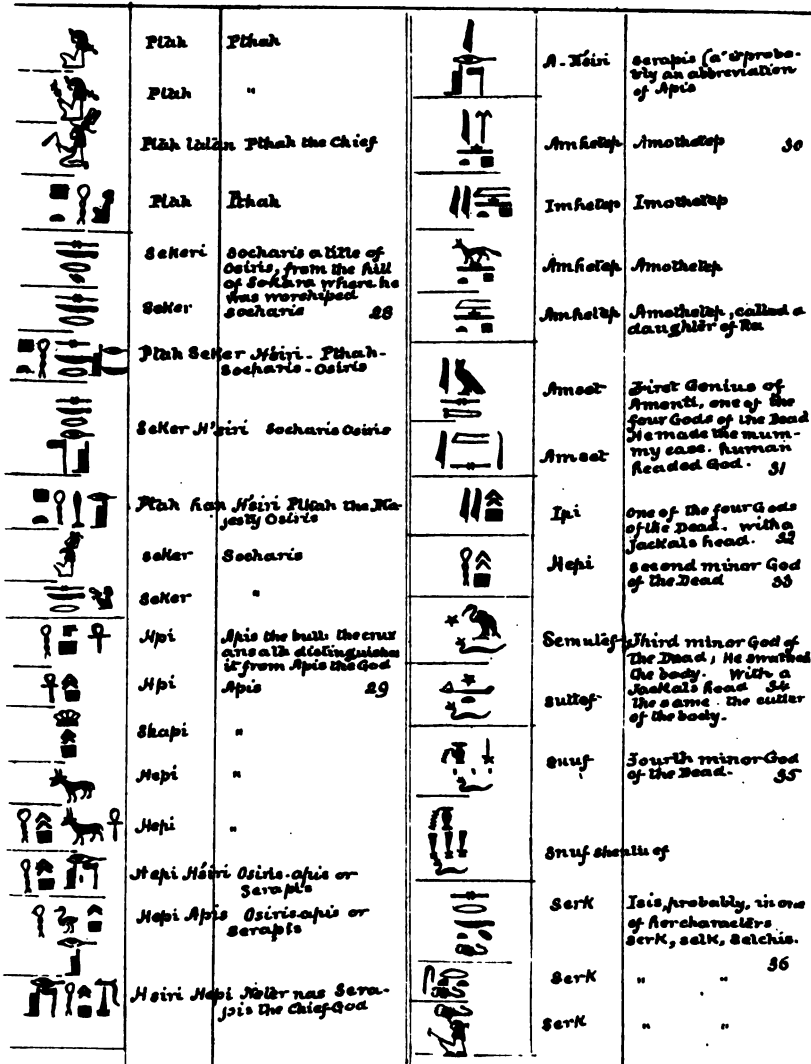 Ptah Pthah
Ptah "
Ptah tatan Pthah the Chief
Ptah Pthah
Sekeri Socharis a title of
Osiris, from the hill
of Sokara where he
was worshiped
Seker Socharis 28
Ptah Seker H'siri - Pthah-
Socharis - Osiris
Seker H'siri Socharis Osiris
Ptah han H'siri Pthah the Ma-
jesty Osiris
Seker Socharis
Seker "
Hpi Apis the bull: the crux
ansata distinguishes
it from Apis the God
Hpi Apis 29
Skapi "
Hepi "
Hepi "
Hepi H'siri Osiris-apis or
Serapis
Hepi Apis Osiris-apis or
Serapis
Hsiri Hepi Neter nas Sera-
pis the Chief God
A-H'siri Serapis (a is proba-
bly an abbreviation
of Apis
Amhetep Amothetep 30
Imhetep Imothetep
Amhetep Amothetep
Amhetep Amothetep, called a
daughter of Ra
Amset First Genius of
Amenti, one of the
four Gods of the Dead
He made the mum-
Amset my case. human
headed God. 31
Ipi One of the four Gods
of the Dead. with a
Jackals head. 32
Hepi Second minor God
of the Dead 33
Semutef Third minor God of
the Dead; He swathes
the body. With a
Jackals head 34
Suttef the same. the cutter
of the body.
Snuf Fourth minor God
of the Dead. 35
Snuf
Serk Isis, probably, in one
of her characters
Serk, Selk, Selchis.
36
Serk " "
Serk " "